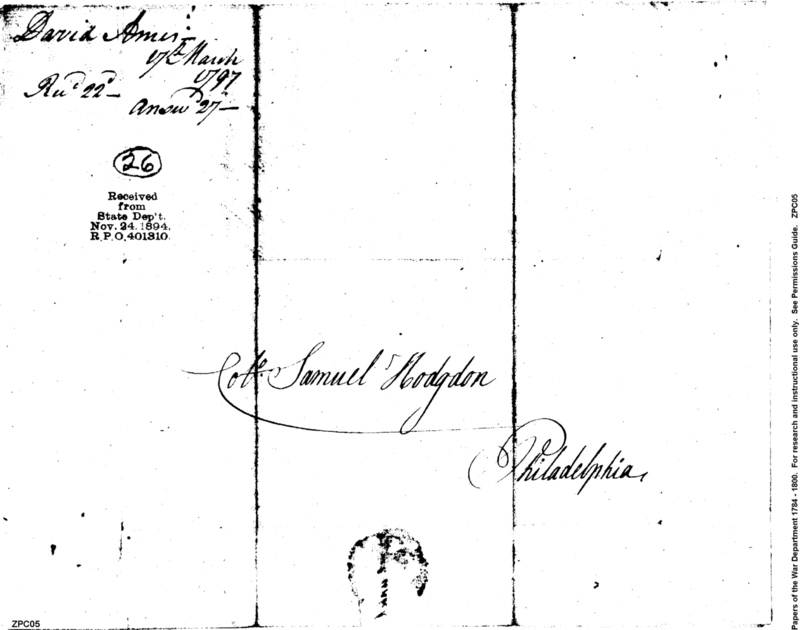 David Ames
17th March
1797
Recd 22d —
Answd 27 —
26
Received
from
State Dep't.
Nov. 24. 1894.
R.P.O. 401310.
Colo. Samuel Hodgdon
Philadelphia,
ZPC05
Papers of the War Department 1784 - 1800. For research and instructional use only. See Permissions Guide. ZPC05